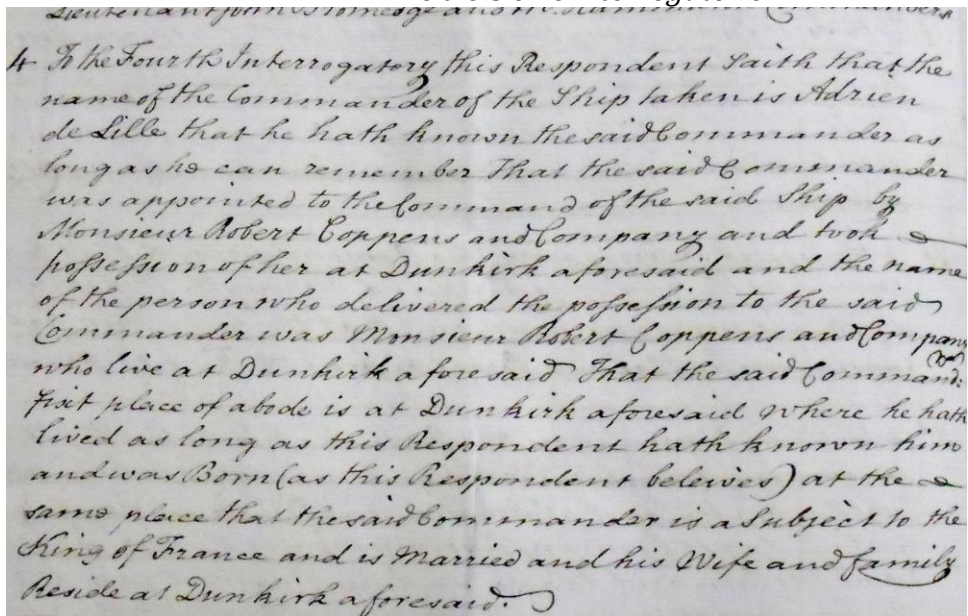 Lieutenant John Bromedge and
4 To the Fourth Interrogatory this Respondent Saith that the
name of the Commander of the Ship taken is Adrien
de Lille that he hath known the said Commander as
long as he can remember That the said Commander
was appointed to the Command of the said Ship by
Monsieur Robert Coppens and Company and took
possession of her at Dunkirk aforesaid and the name
of the person who delivered the possession to the said
Commander was Monsieur Robert Coppens and Company
who live at Dunkirk aforesaid That the said Command:
fixt place of abode is at Dunkirk aforesaid where he hath
lived as long as this Respondent hath known him
and was Born (as this Respondent beleives) at the
same place that the said Commander is a Subject to the
King of France and is Married and his Wife and family
Reside at Dunkirk aforesaid.